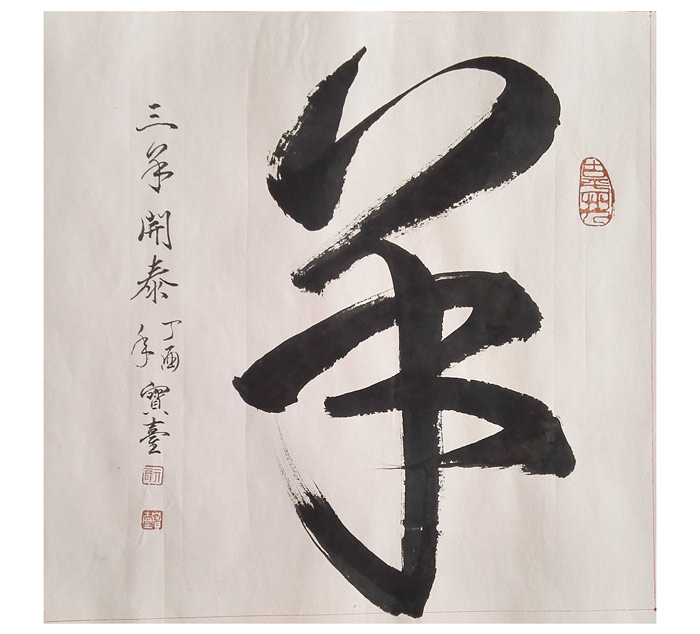 羊
三羊開泰
丁酉
年
寶臺